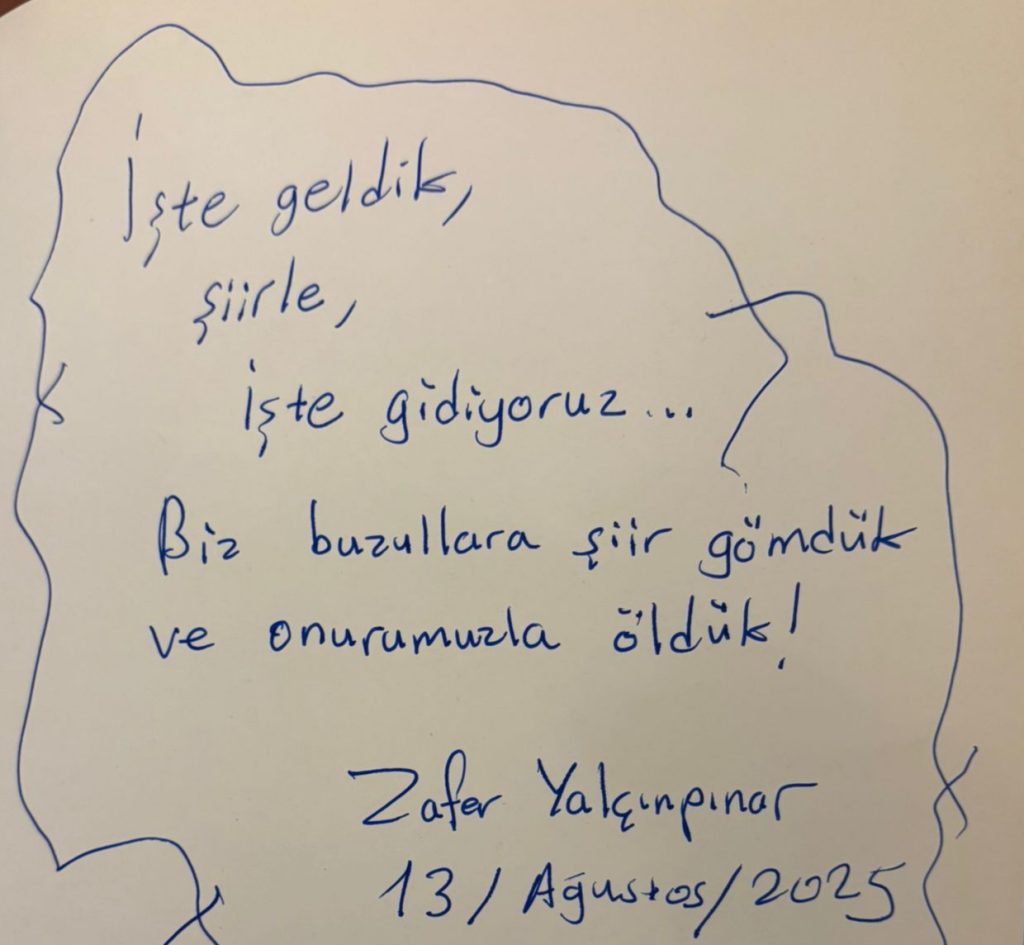 İşte geldik,
şiirle,
işte gidiyoruz...
Biz buzullara şiir gömdük
ve onurumuzla öldük!
Zafer Yalçınpınar
13/Ağustos/2025